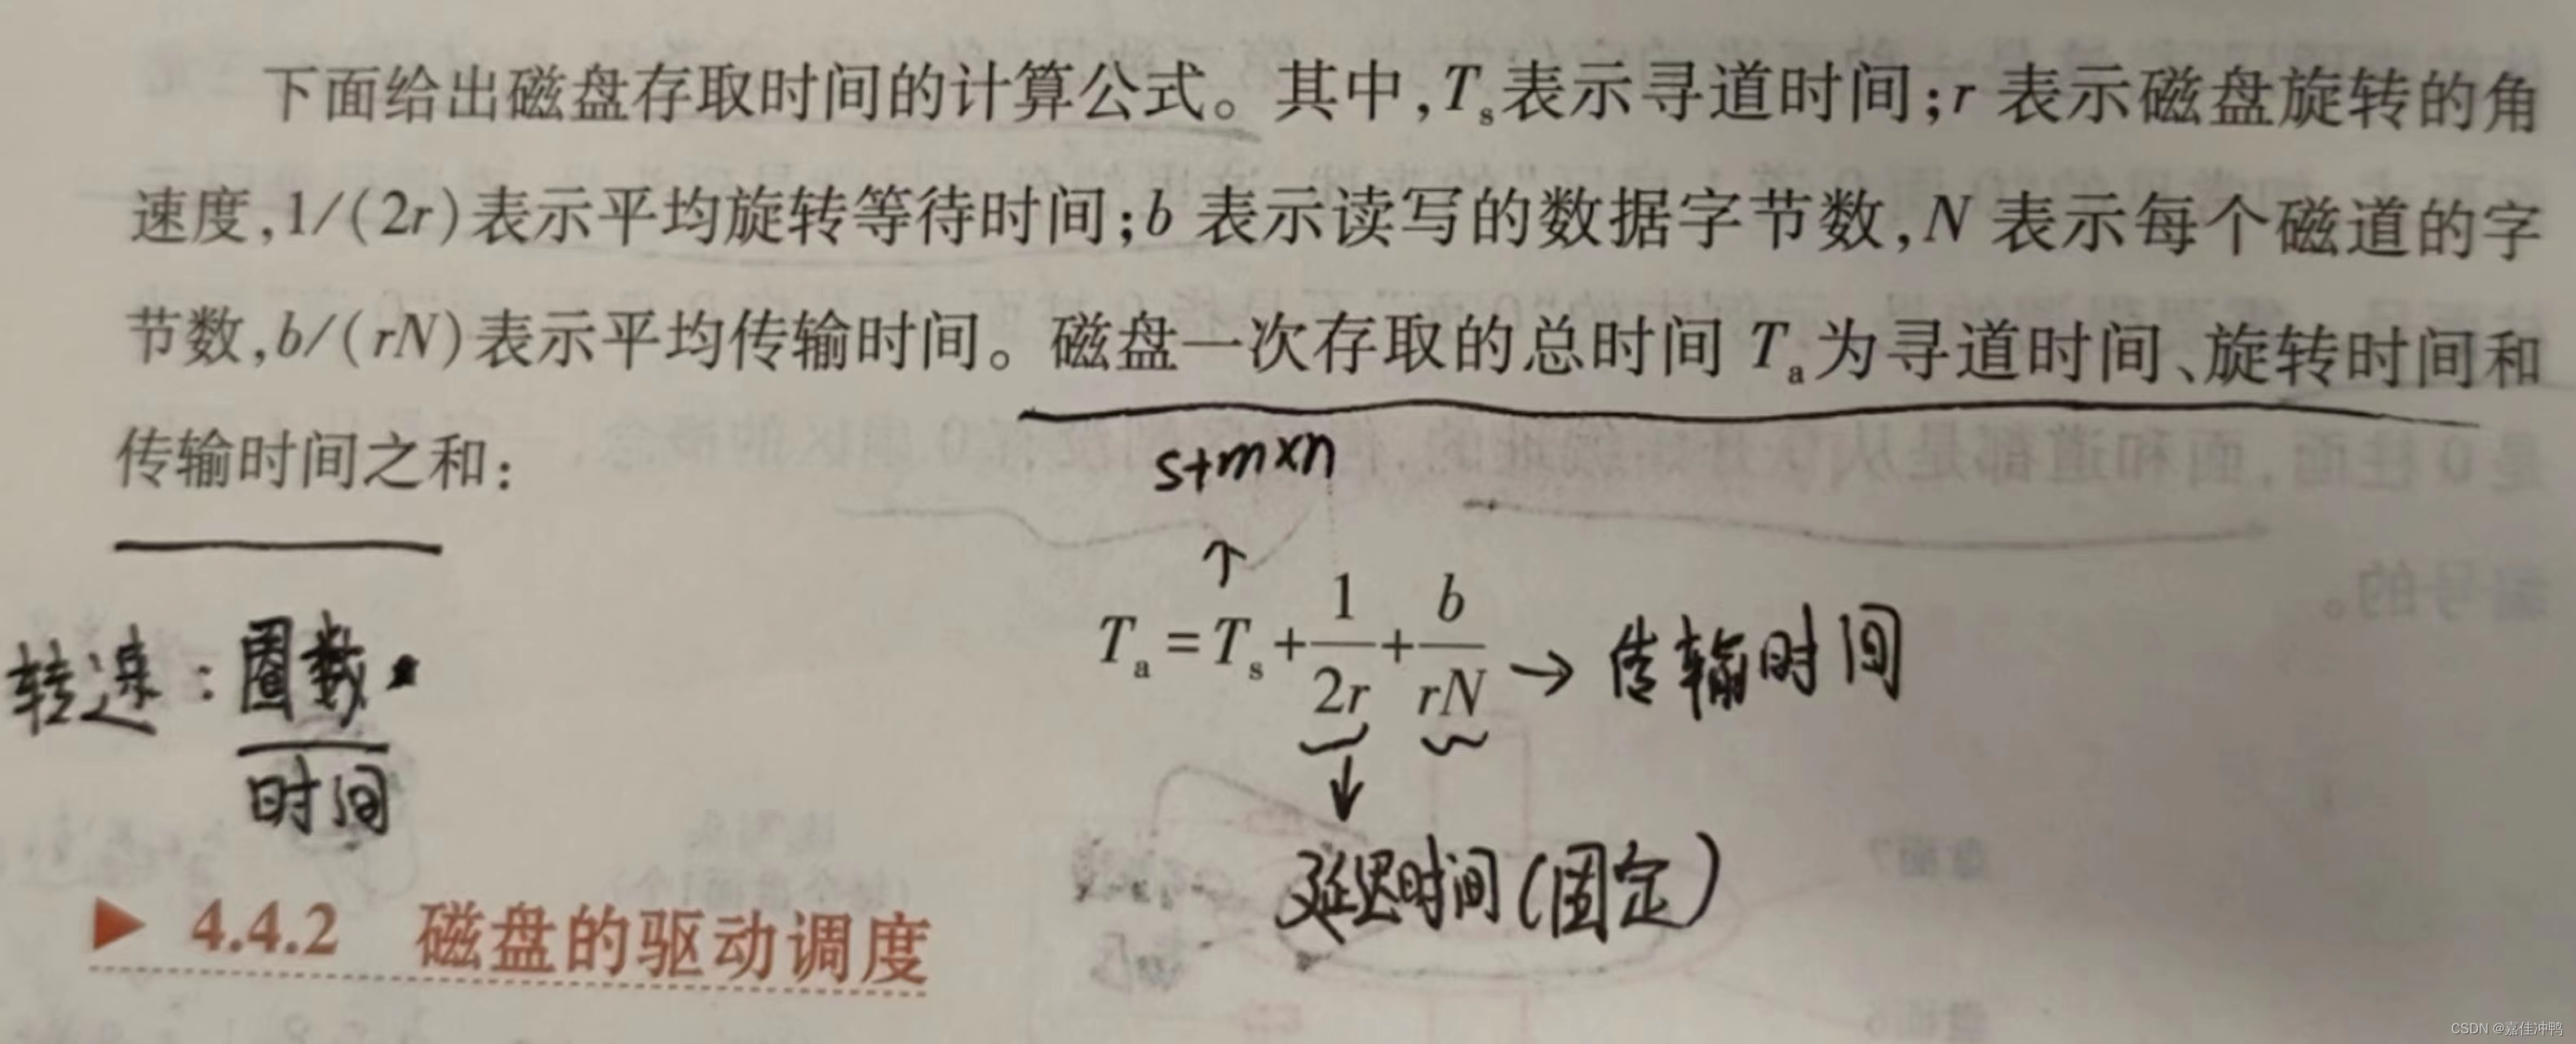 下面给出磁盘存取时间的计算公式。其中,Ts表示寻道时间;r 表示磁盘旋转的角
速度,1/(2r)表示平均旋转等待时间;b 表示读写的数据字节数,N 表示每个磁道的字
节数,b/(rN)表示平均传输时间。磁盘一次存取的总时间 Ta为寻道时间、旋转时间和
传输时间之和:
s+m×n
↑
Ta = Ts + 1/2r + b/rN → 传输时间
转速:圈数
时间
↓
延迟时间(固定)
▶ 4.4.2 磁盘的驱动调度
CSDN @嘉佳冲鸭